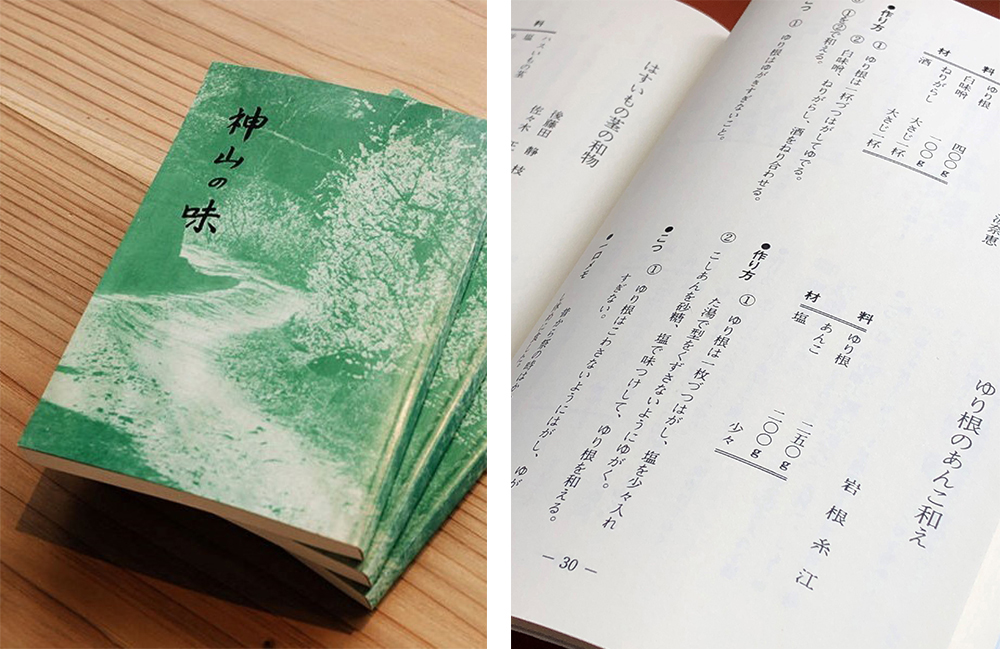 神山の味
ゆり根
白味噌
ねりがらし
酒
材料
四〇〇g
一〇〇g
大さじ一杯
大さじ一杯
●作り方 ① ゆり根は一杯づつはがしてゆでる。
② 白味噌、ねりがらし、酒をねり合わせる。
③ ①を②で和える。
こつ ① ゆり根はゆがきすぎないこと。
ゆり根のあんこ和え
岩根糸江
材料
ゆり根 二五〇g
あんこ 二〇〇g
塩 少々
●作り方 ① ゆり根は一枚づつはがし、塩を少々入れ
た湯で型をくずさないようにゆがく。
② こしあんを砂糖、塩で味つけして、ゆり根を和える。
●こつ ① ゆり根はこわさないようにはがし、ゆが
すぎない。
はすいもの茎の和物
後藤田 静
佐々木 正枝
料
ハスいもの茎
塩
— 30 —